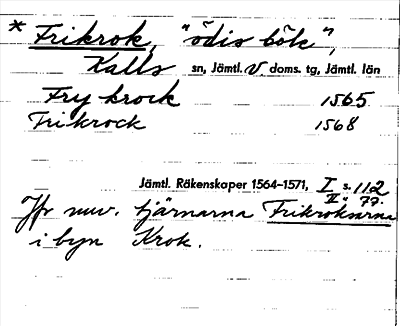 * Frikrok, "ödis bök",
Kalls sn, Jämtl. V doms. tg, Jämtl. län
Fry krock 1565
Frikrock 1568
Jämtl. Räkenskaper 1564–1571, I s. 112
II " 77.
Jfr nuv. tjärnarna Frikroksarna
i byn Krok.